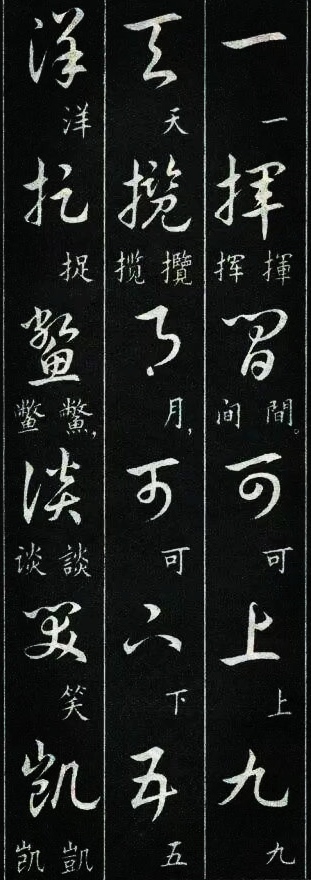 一揮間可上九
一
挥 揮
间 間。
可
上
九
天攬月可下五
天
揽 攬
月,
可
下
五
洋捉鳖談笑凯
洋
捉
鳖 鱉,
谈 談
笑
凯 凱